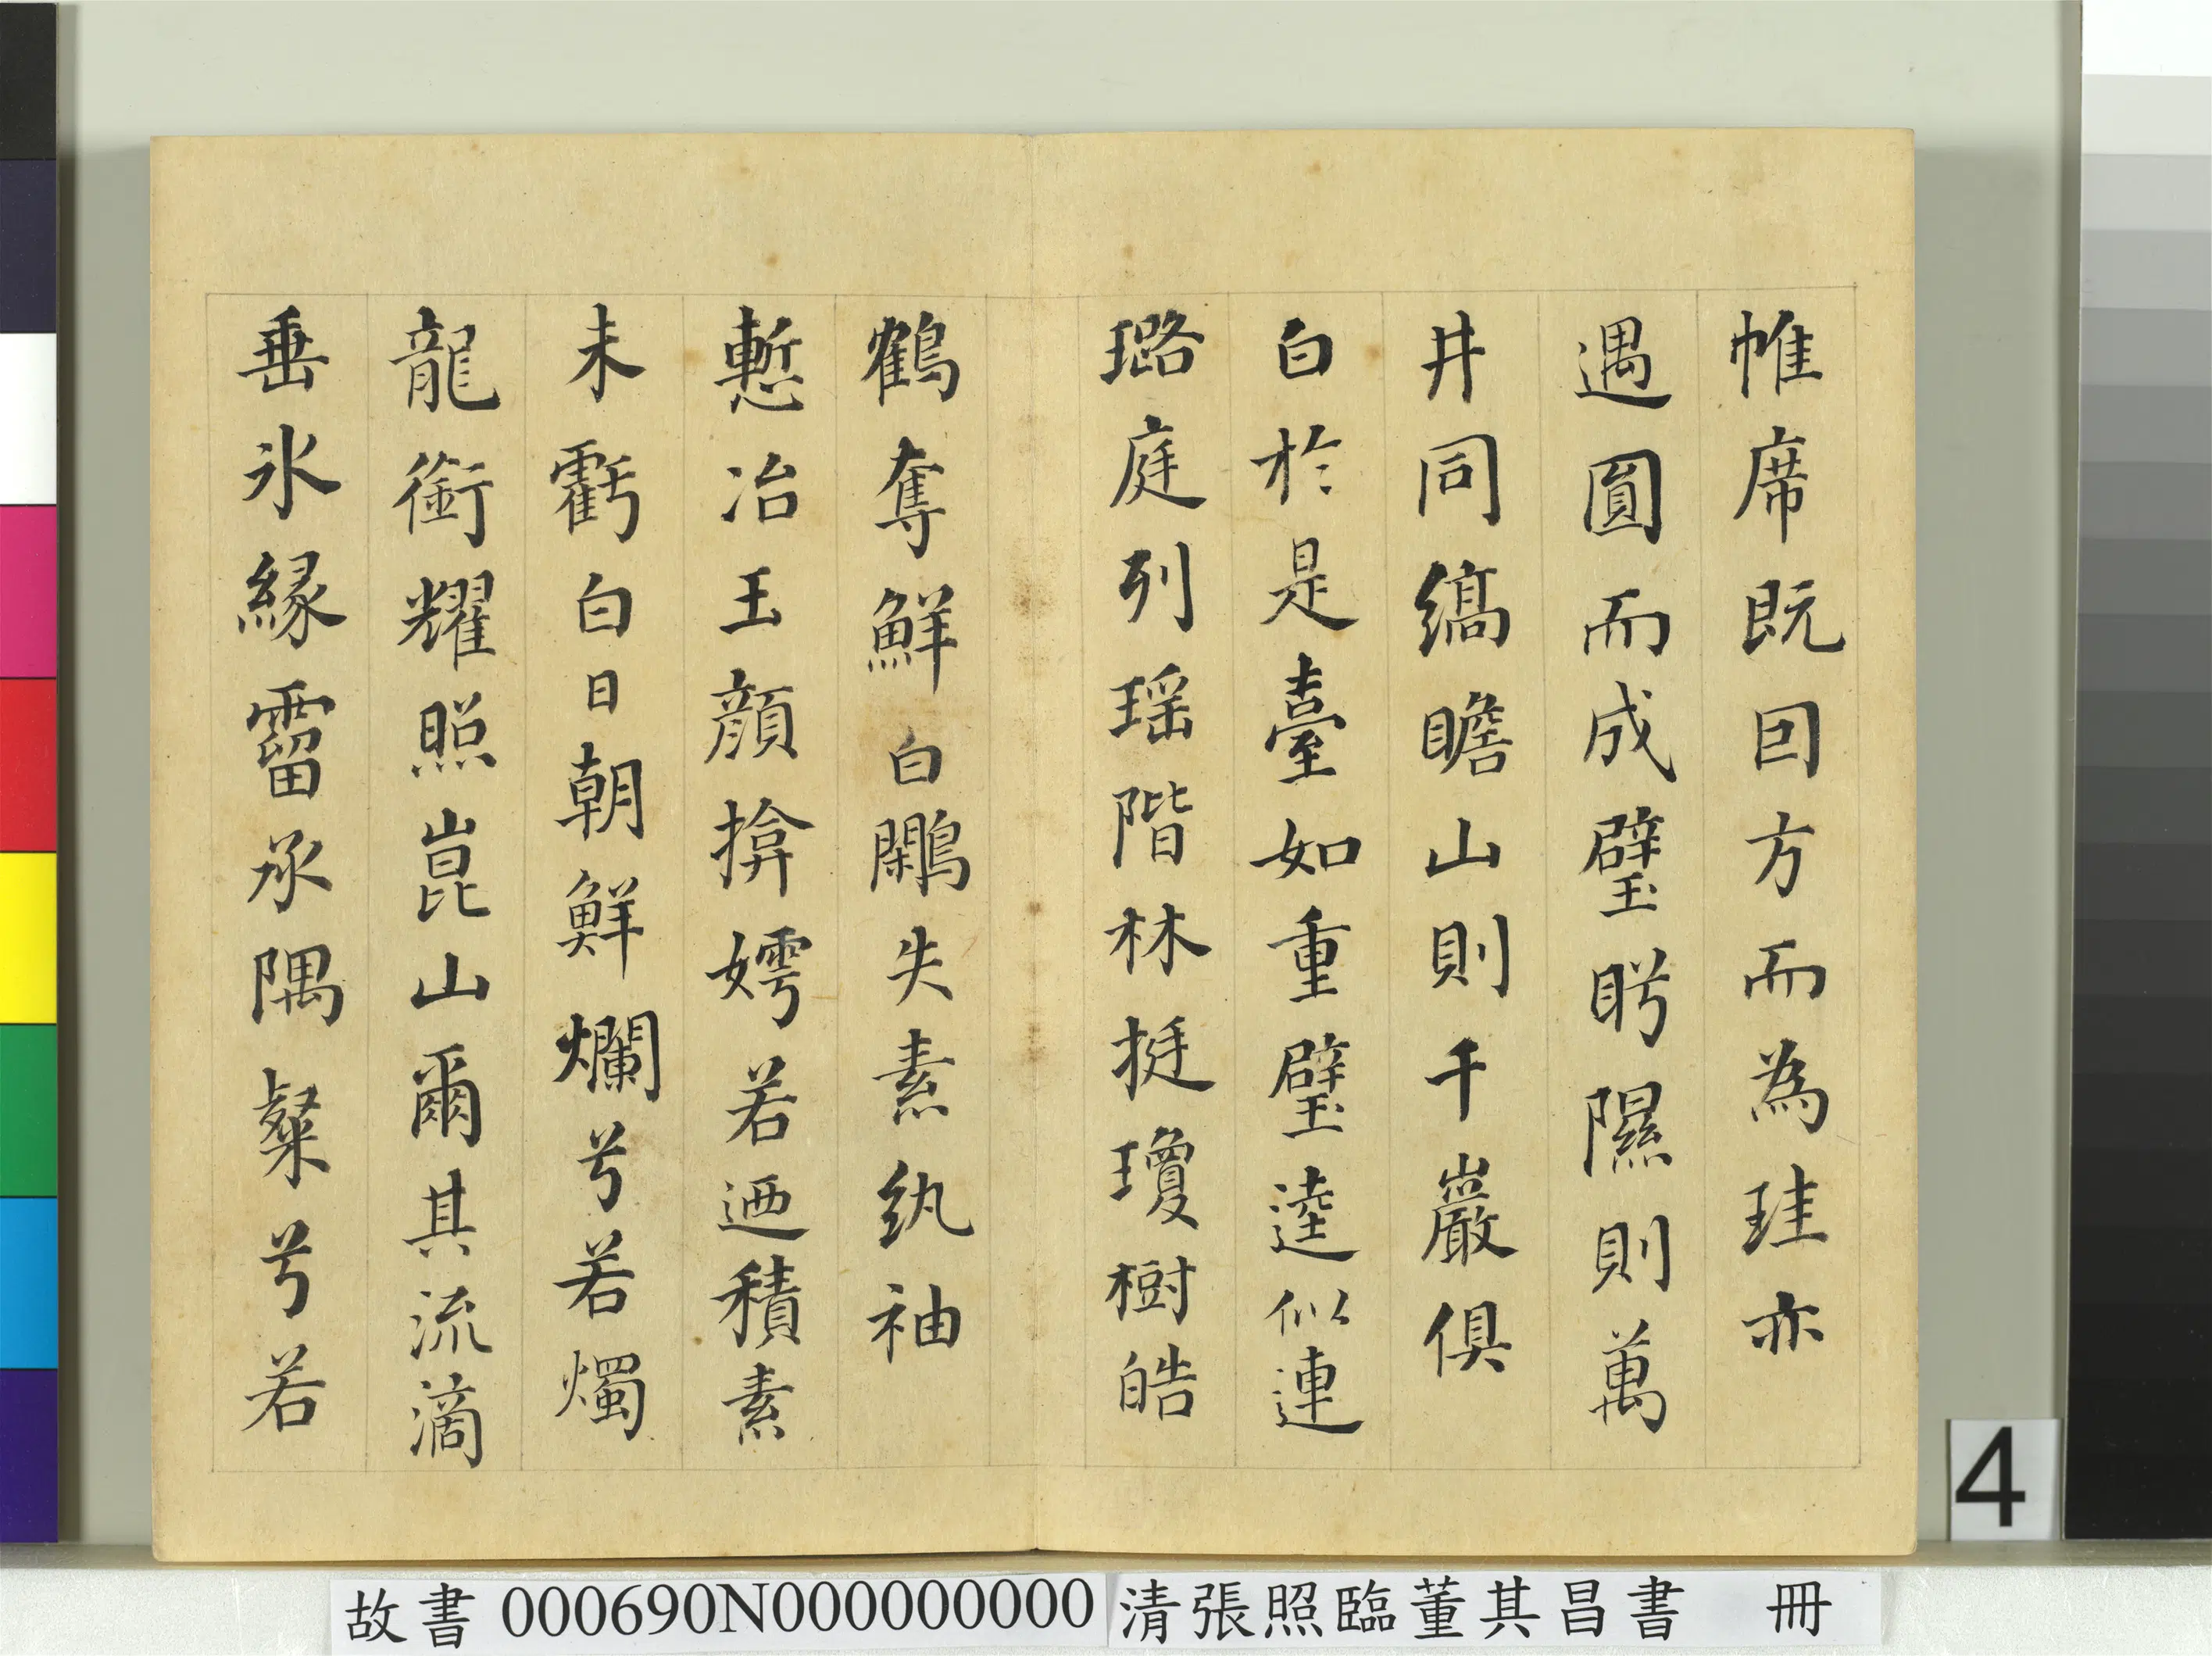 帷席既因方而為珪亦
遇圓而成璧眄隰則萬
井同縞瞻山則千巖俱
白於是臺如重璧逵似連
璐庭列瑶階林挺瓊樹皓
鶴奪鮮白鷴失素紈袖
慙冶玉顏揜嫮若迺積素
未虧白日朝鮮爛兮若燭
龍銜耀照崑山爾其流滴
垂氷緣霤承隅粲兮若
4
故書 000690N000000000 清張照臨董其昌書 冊